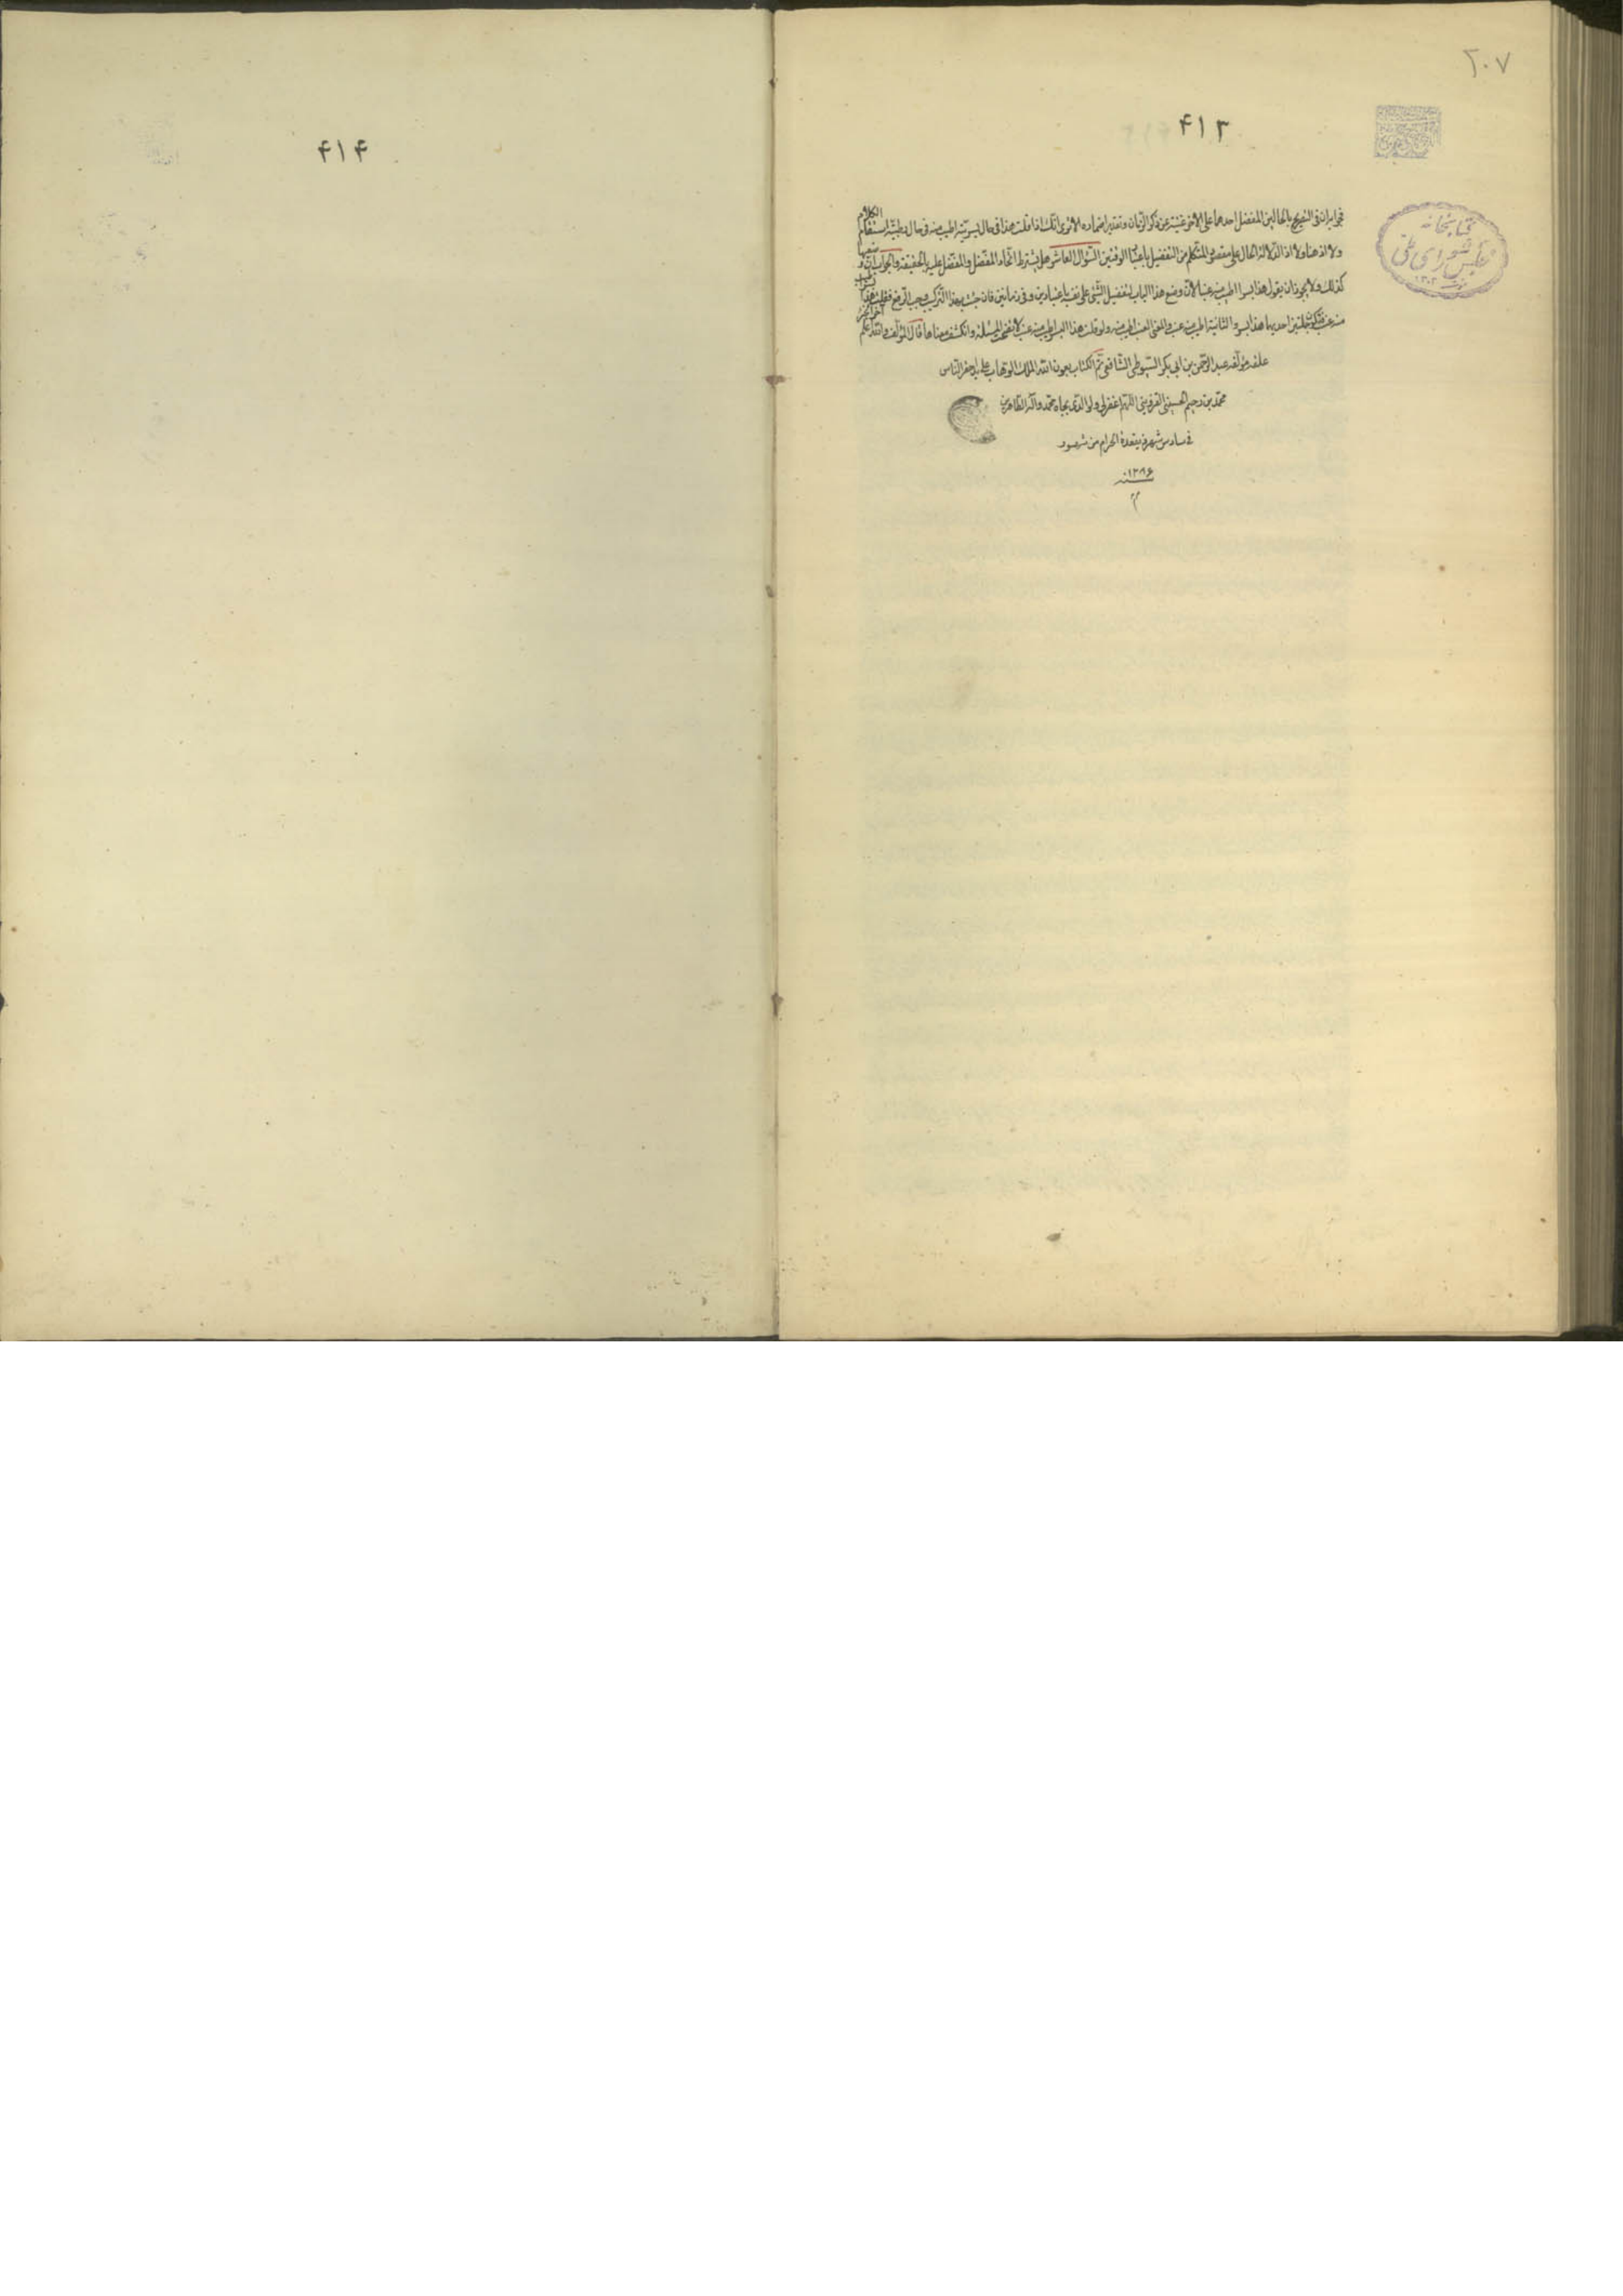 ۲۰۷
۴۱۳
کتابخانه
مجلس شورای ملی
فی ایران فی التصریح بالحالین المفضل احدهما علی الاخر غنیة عن ذکر الزمان و تقدیر اضماره الا تری انک اذا قلت هذا فی حال بسریته اطیب منه فی حال رطبیته استقام الکلام
ولا اذ هنا ولا اذا لدلالة الحال علی مقصود المتکلم من التفضیل باعتبار الوقتین السؤال العاشر هل یشترط اتحاد المفضل والمفضل علیه بالحقیقة والجواب ان
کذلک ولا یجوز ان یقول هذا بسرا اطیب منه عنبا لان وضع هذا الباب لتفضیل الشیء علی نفسه باعتبارین و فی زمانین فان جئت بهذا الترکیب وجب الرفع فقلت هذا
منه عنب فتکون جملتین احدیهما هذا بسر والثانیة اطیب منه عنب والمعنی العنب اطیب منه ولو قلت هذا البسر اطیب منه عنب لاتضحت المسئلة وانکشف معناها قال المؤلف والله اعلم
علقه مؤلفه عبد الرحمن بن ابی بکر السیوطی الشافعی تم الکتاب بعون الله الملک الوهاب علی ید احقر الناس
محمد بن رحیم الحسینی القزوینی اللهم اغفر لی ولوالدی بجاه محمد وآله الطاهرین
فی سادس شهر ذیقعدة الحرام من شهور
سنه ۱۲۸۶
۴۱۴